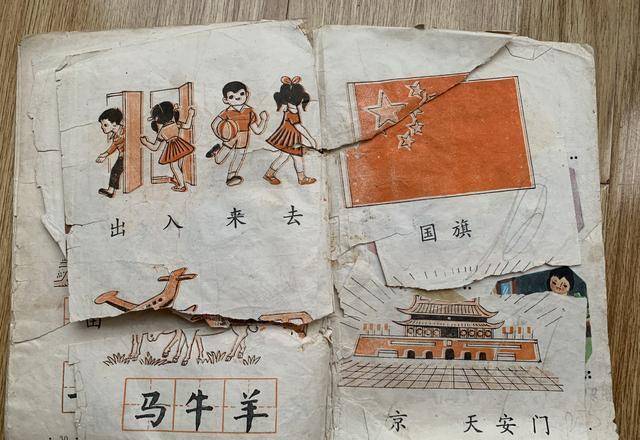 出 入 来 去
马 牛 羊
国 旗
京 天 安 门